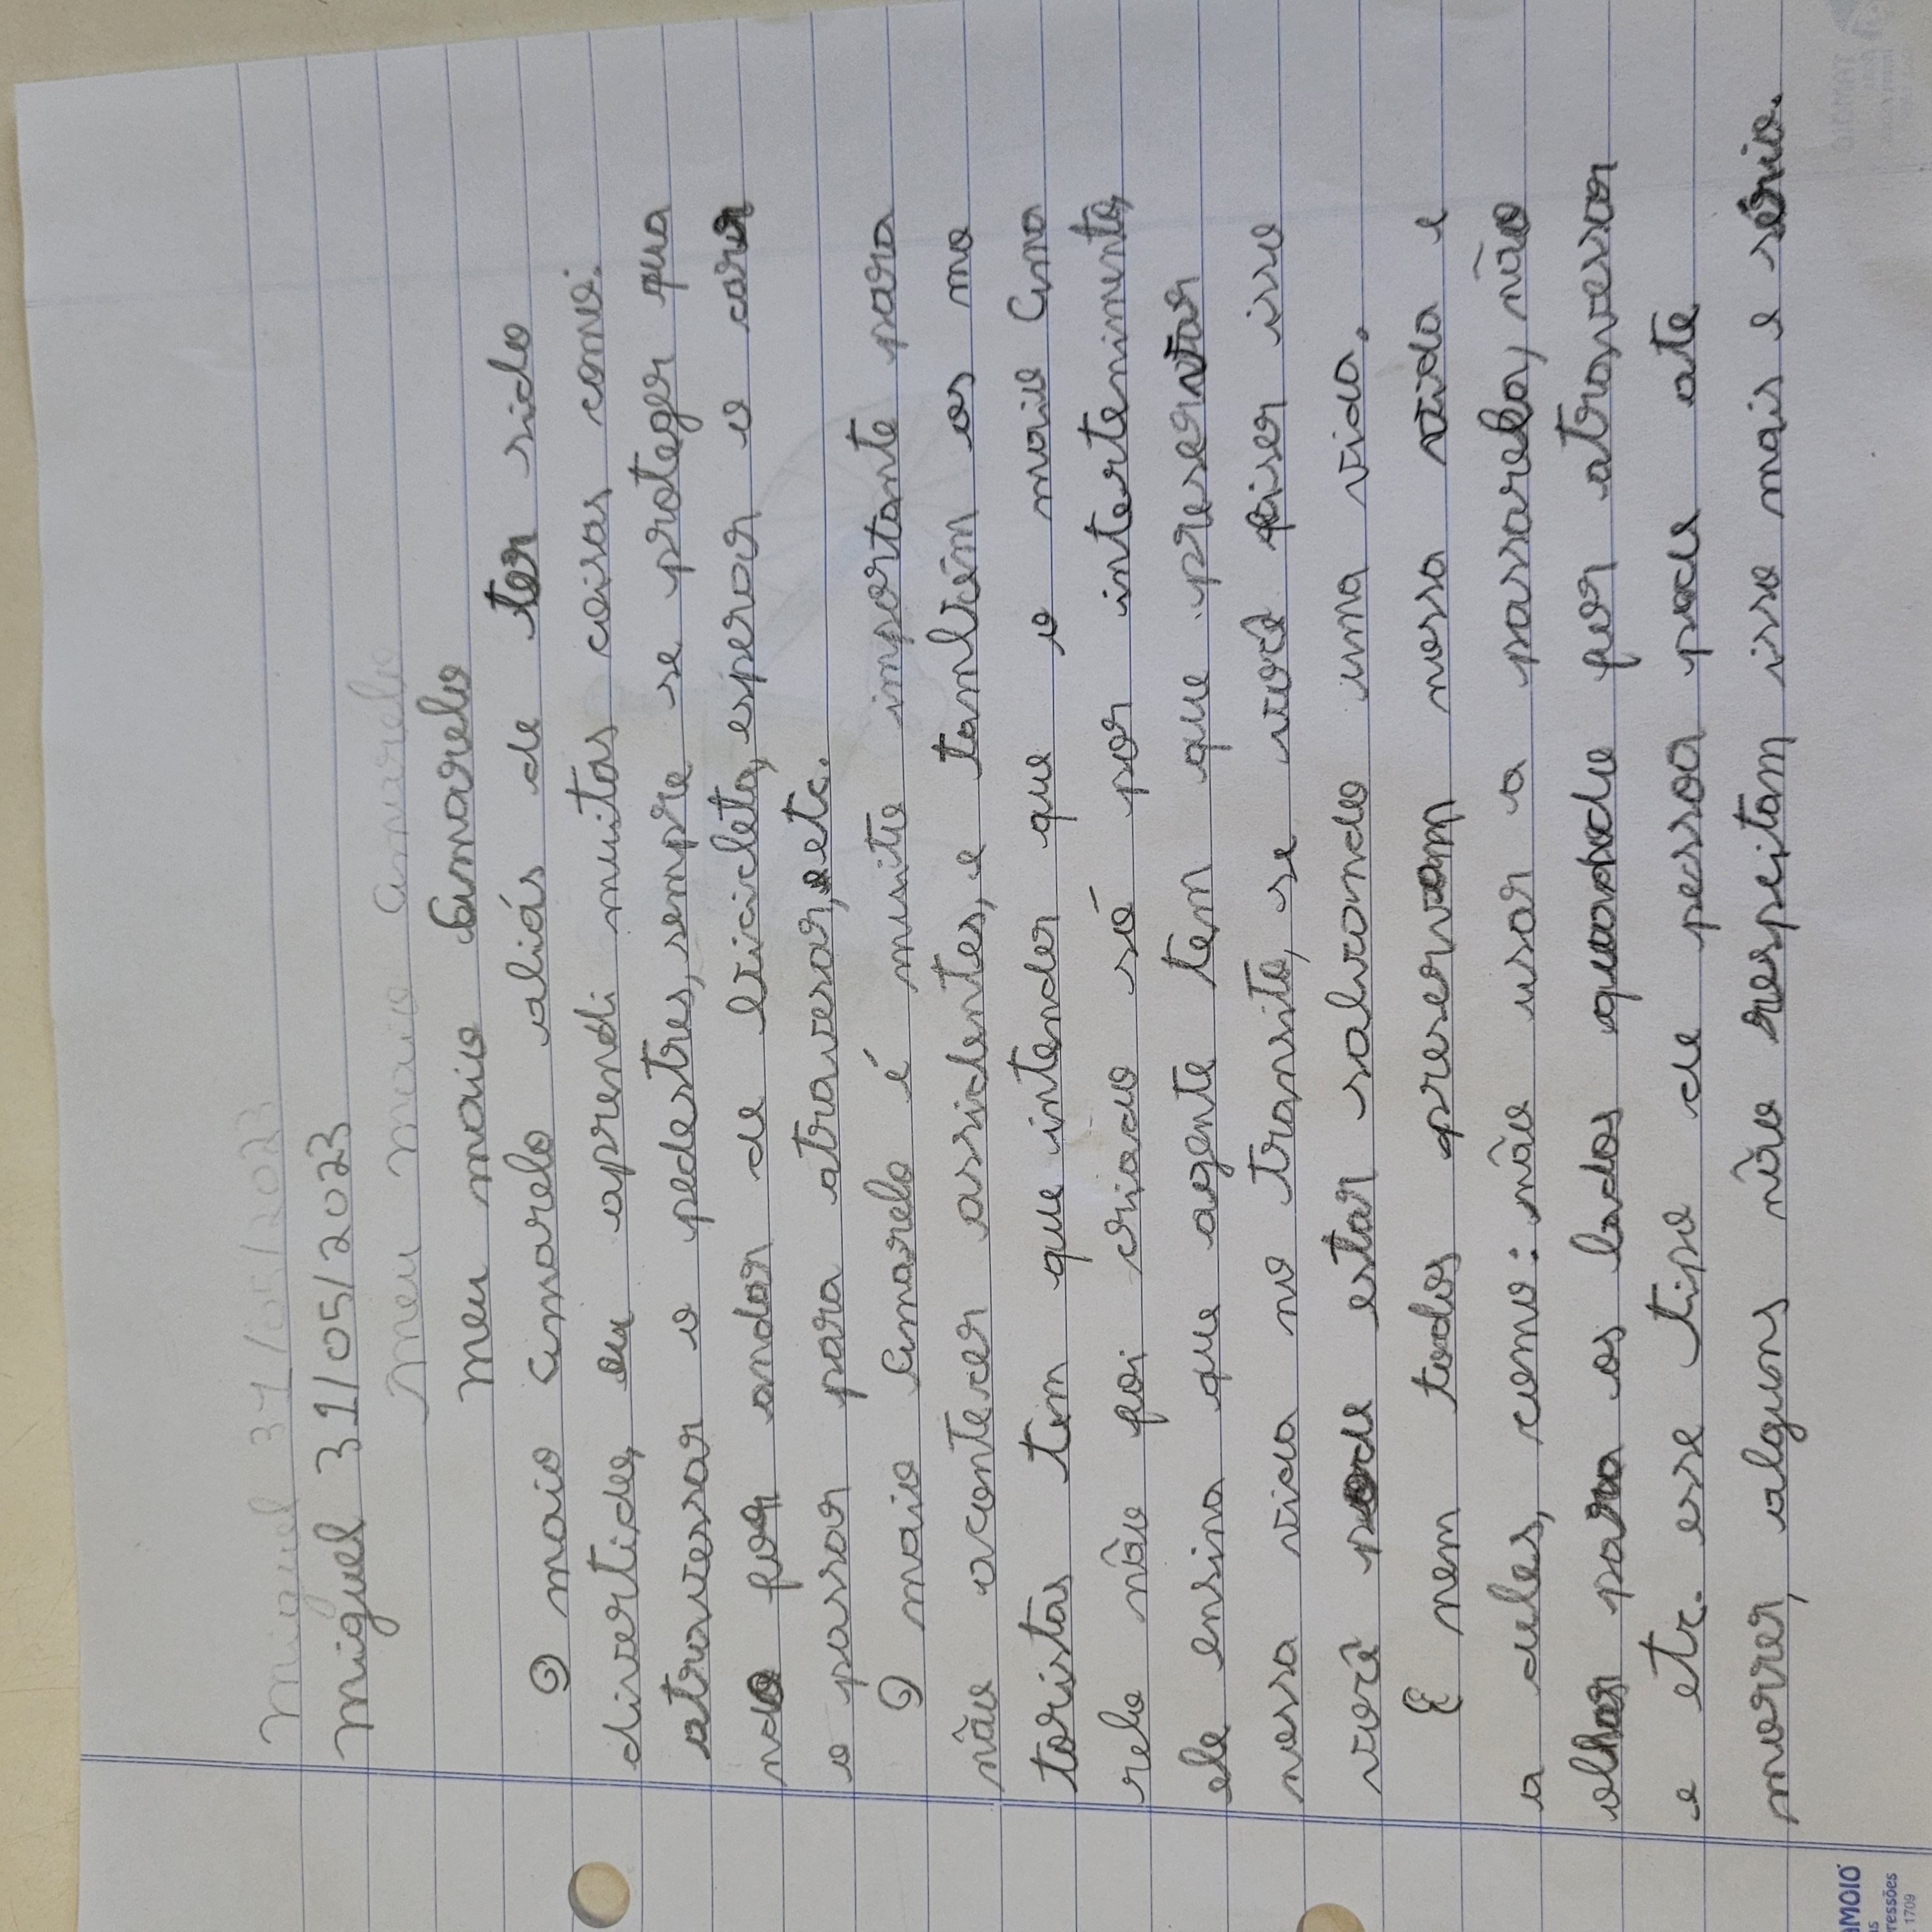 Miguel 31/05/2023
Miguel 31/05/2023
Meu maio amarelo
Meu maio Amarelo
O maio amarelo aliás de ter sido
divertido, eu aprendi muitas coisas como:
atravessar o pedestres, sempre se proteger qua
ndo for andar de bicicleta, esperar o carr
o passar para atravesar, etc.
O maio Amarelo é muito importante para
não acontecer assidentes, e também os mo
toristas tem que intender que o maio Ama
relo não foi criado só por intertenimento,
ele ensina que agente tem que preservar
nossa vida no transito, se você fiser isso
você pode estar salvando uma vida.
E nem todos preservam nossa vida e
a deles, como: não usar a passarela, não
olhar para os lados quando for atravessar
e etc. esse tipo de pessoa pode ate
morrer, alguns não respeitam isso mais e sério.
TAMOIO
AMOIO
as
ressões
1709